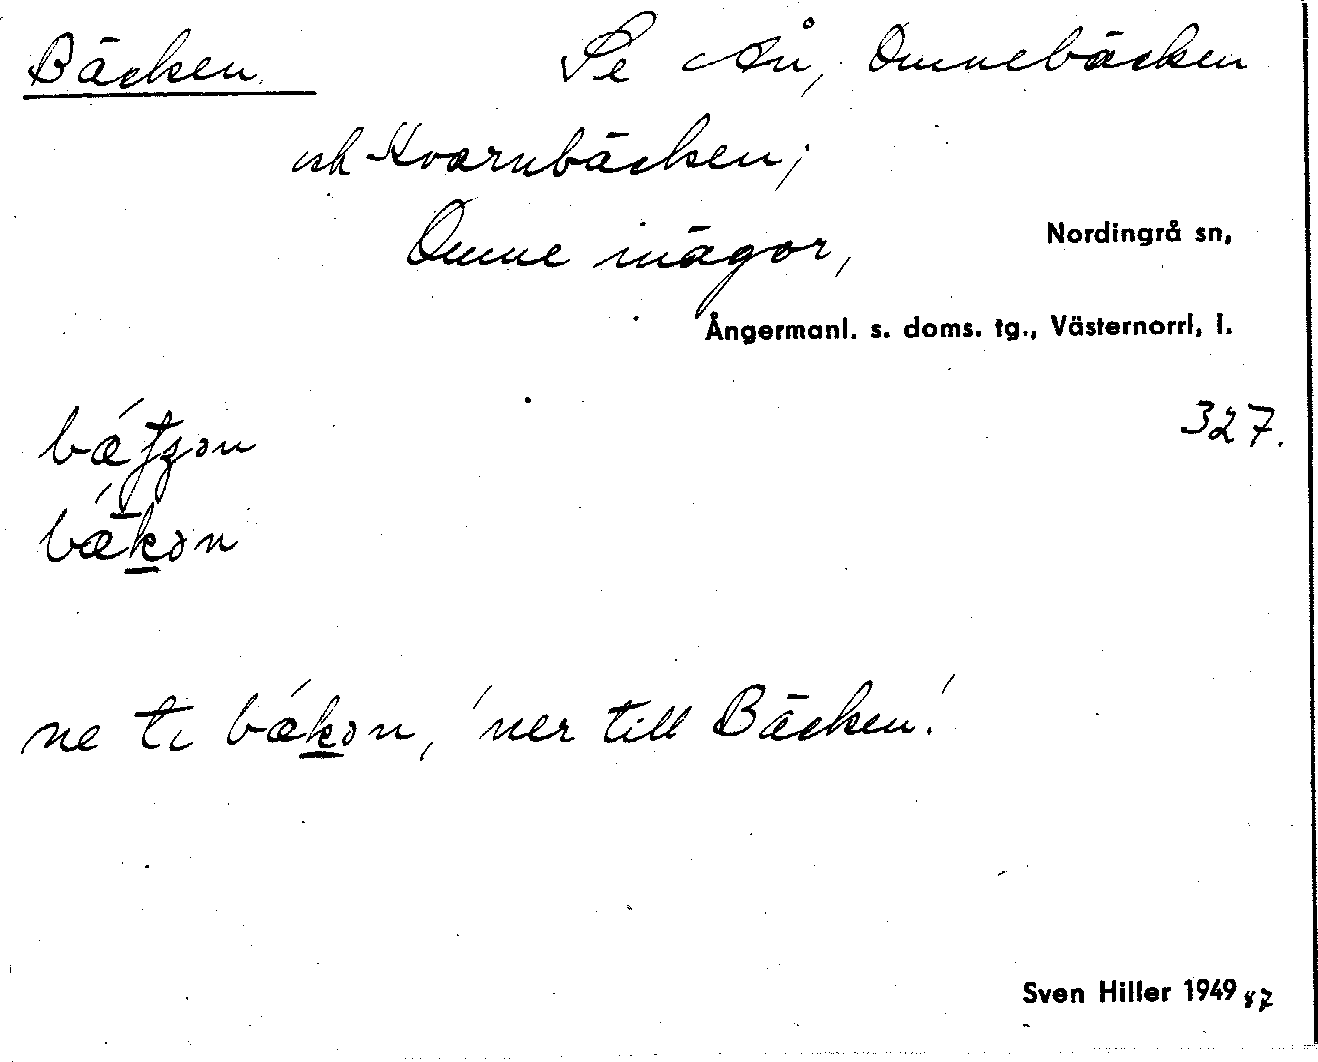 Bäcken. Se Ån, Omnebäcken
och Kvarnbäcken;
Omne inägor,
Nordingrå sn,
Ångermanl. s. doms. tg., Västernorrl. l.
327.
bækən
ne ti bækən, 'ner till Bäcken.'
Sven Hiller 1949